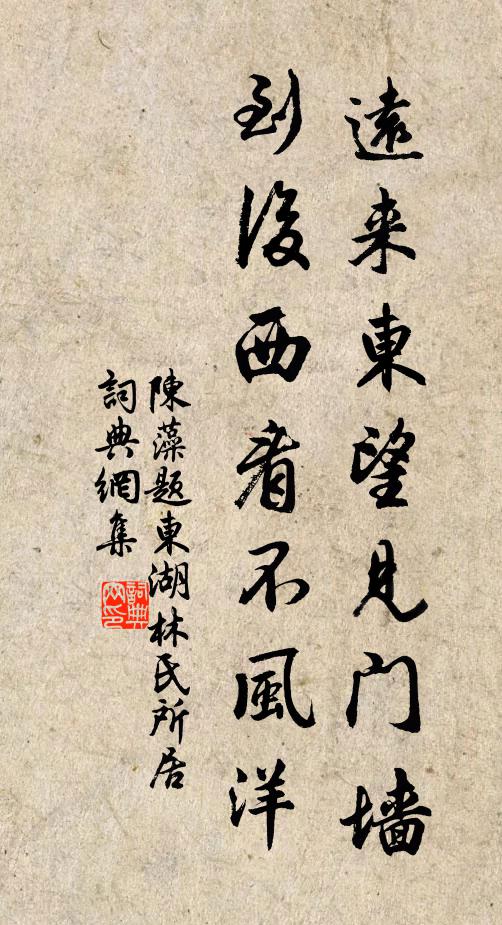 遠来東望見門墙
到後西看不風洋
陳藻題東湖林氏所居
詞典網集
詞典
網印